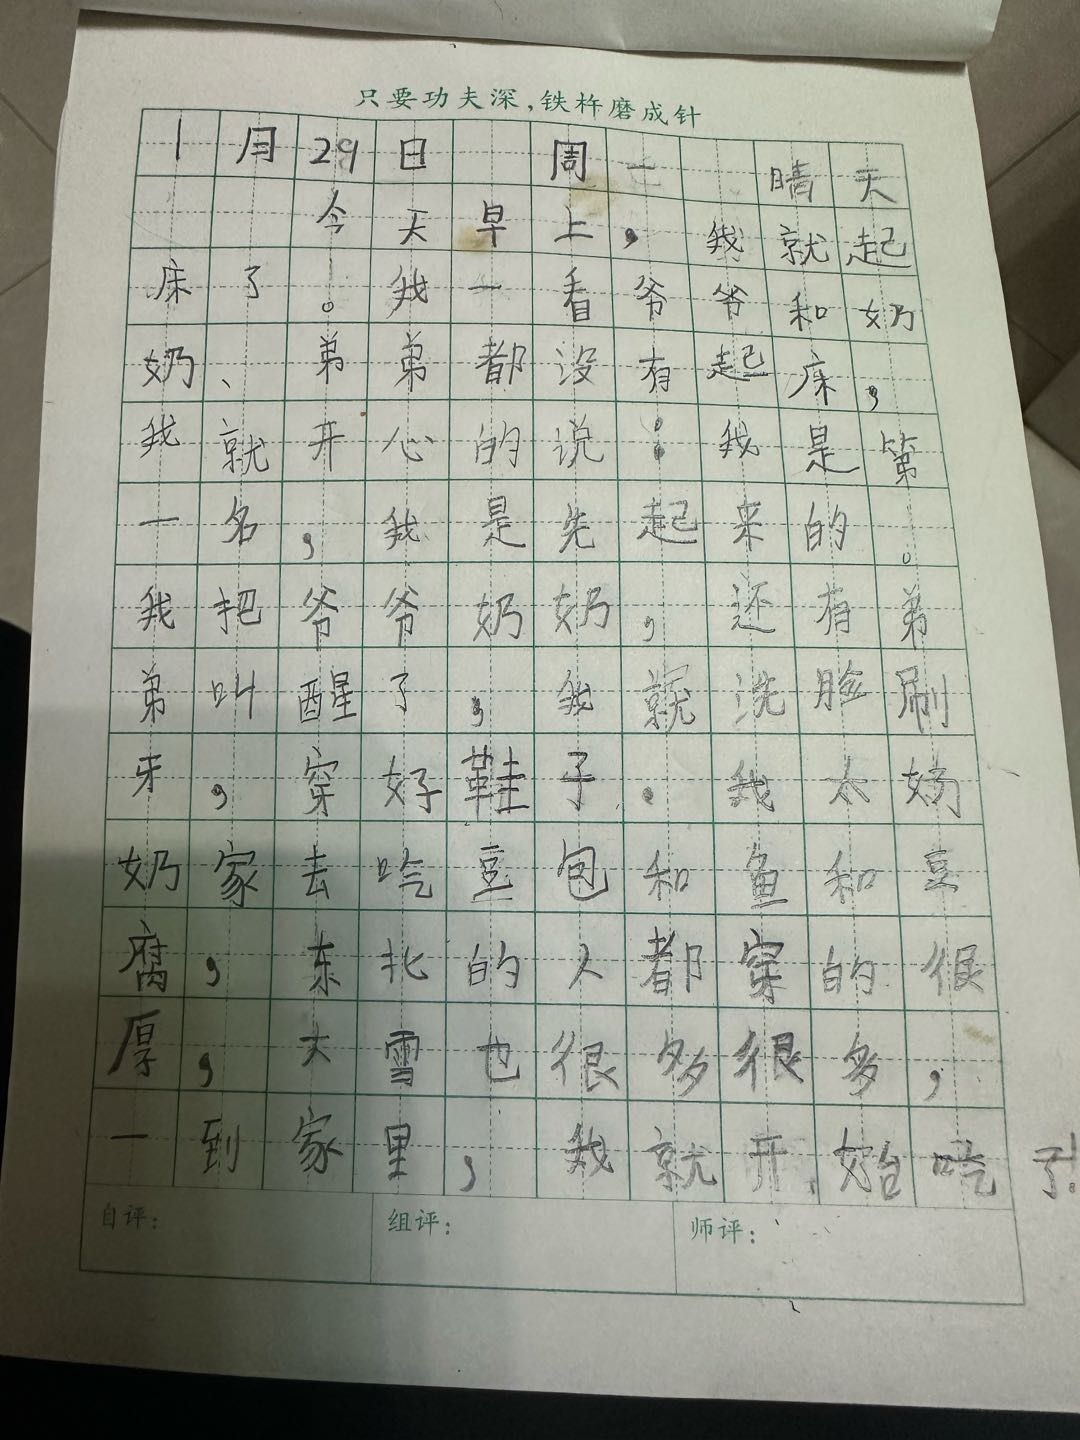 只要功夫深,铁杵磨成针
1月29日 周一 晴天
今天早上,我就起
床了。我一看爷爷和奶
奶、弟弟都没有起床,
我就开心的说:我是第
一名,我是先起来的。
我把爷爷奶奶,还有弟
弟叫醒了,我就洗脸刷
牙,穿好鞋子.我太奶
奶家去吃豆包和鱼和豆
腐,东北的人都穿的很
厚,大雪也很多很多,
一到家里,我就开始吃了!
自评: 组评: 师评: